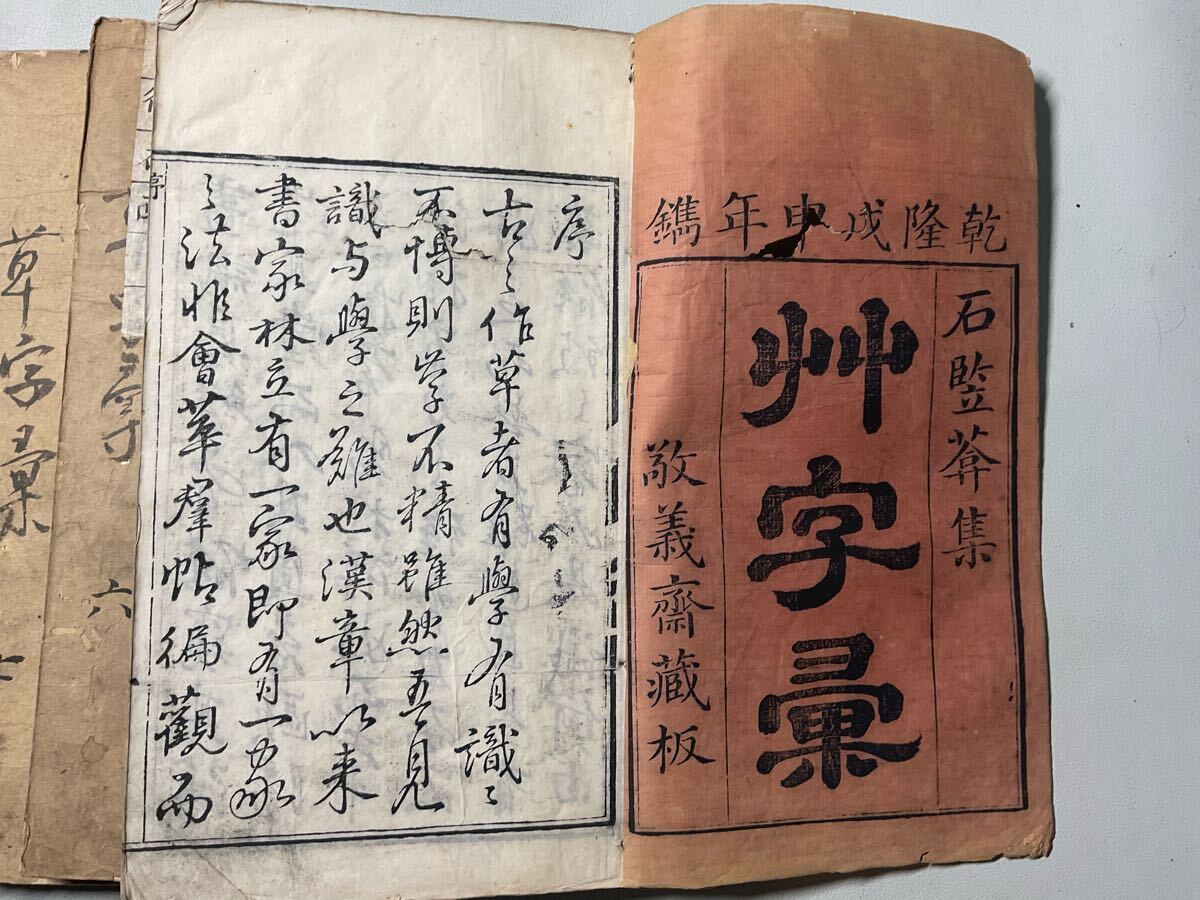 乾隆戊申年鐫
石竪葊集
艸字彙
敬義齋藏板
序
古之作草者有學有識〻
不博則学不精雖然吾見
識与學之難也漢章以来
書家林立有一家即有一家
之法惟會萃羣帖徧觀而
六
草字彙